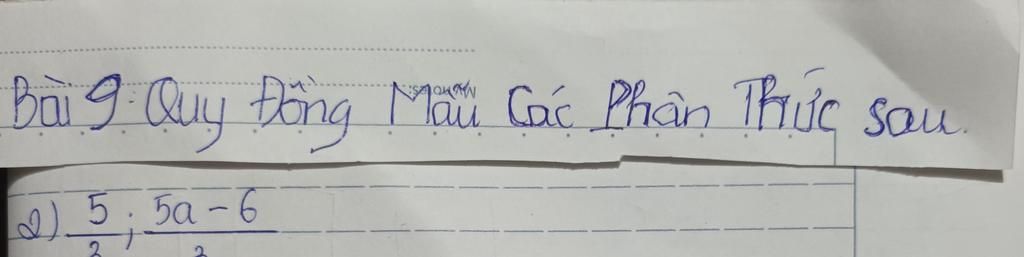 Bài 9. Quy Đồng Mẫu Các Phân Thức sau.
2) 5/ ; 5a - 6/